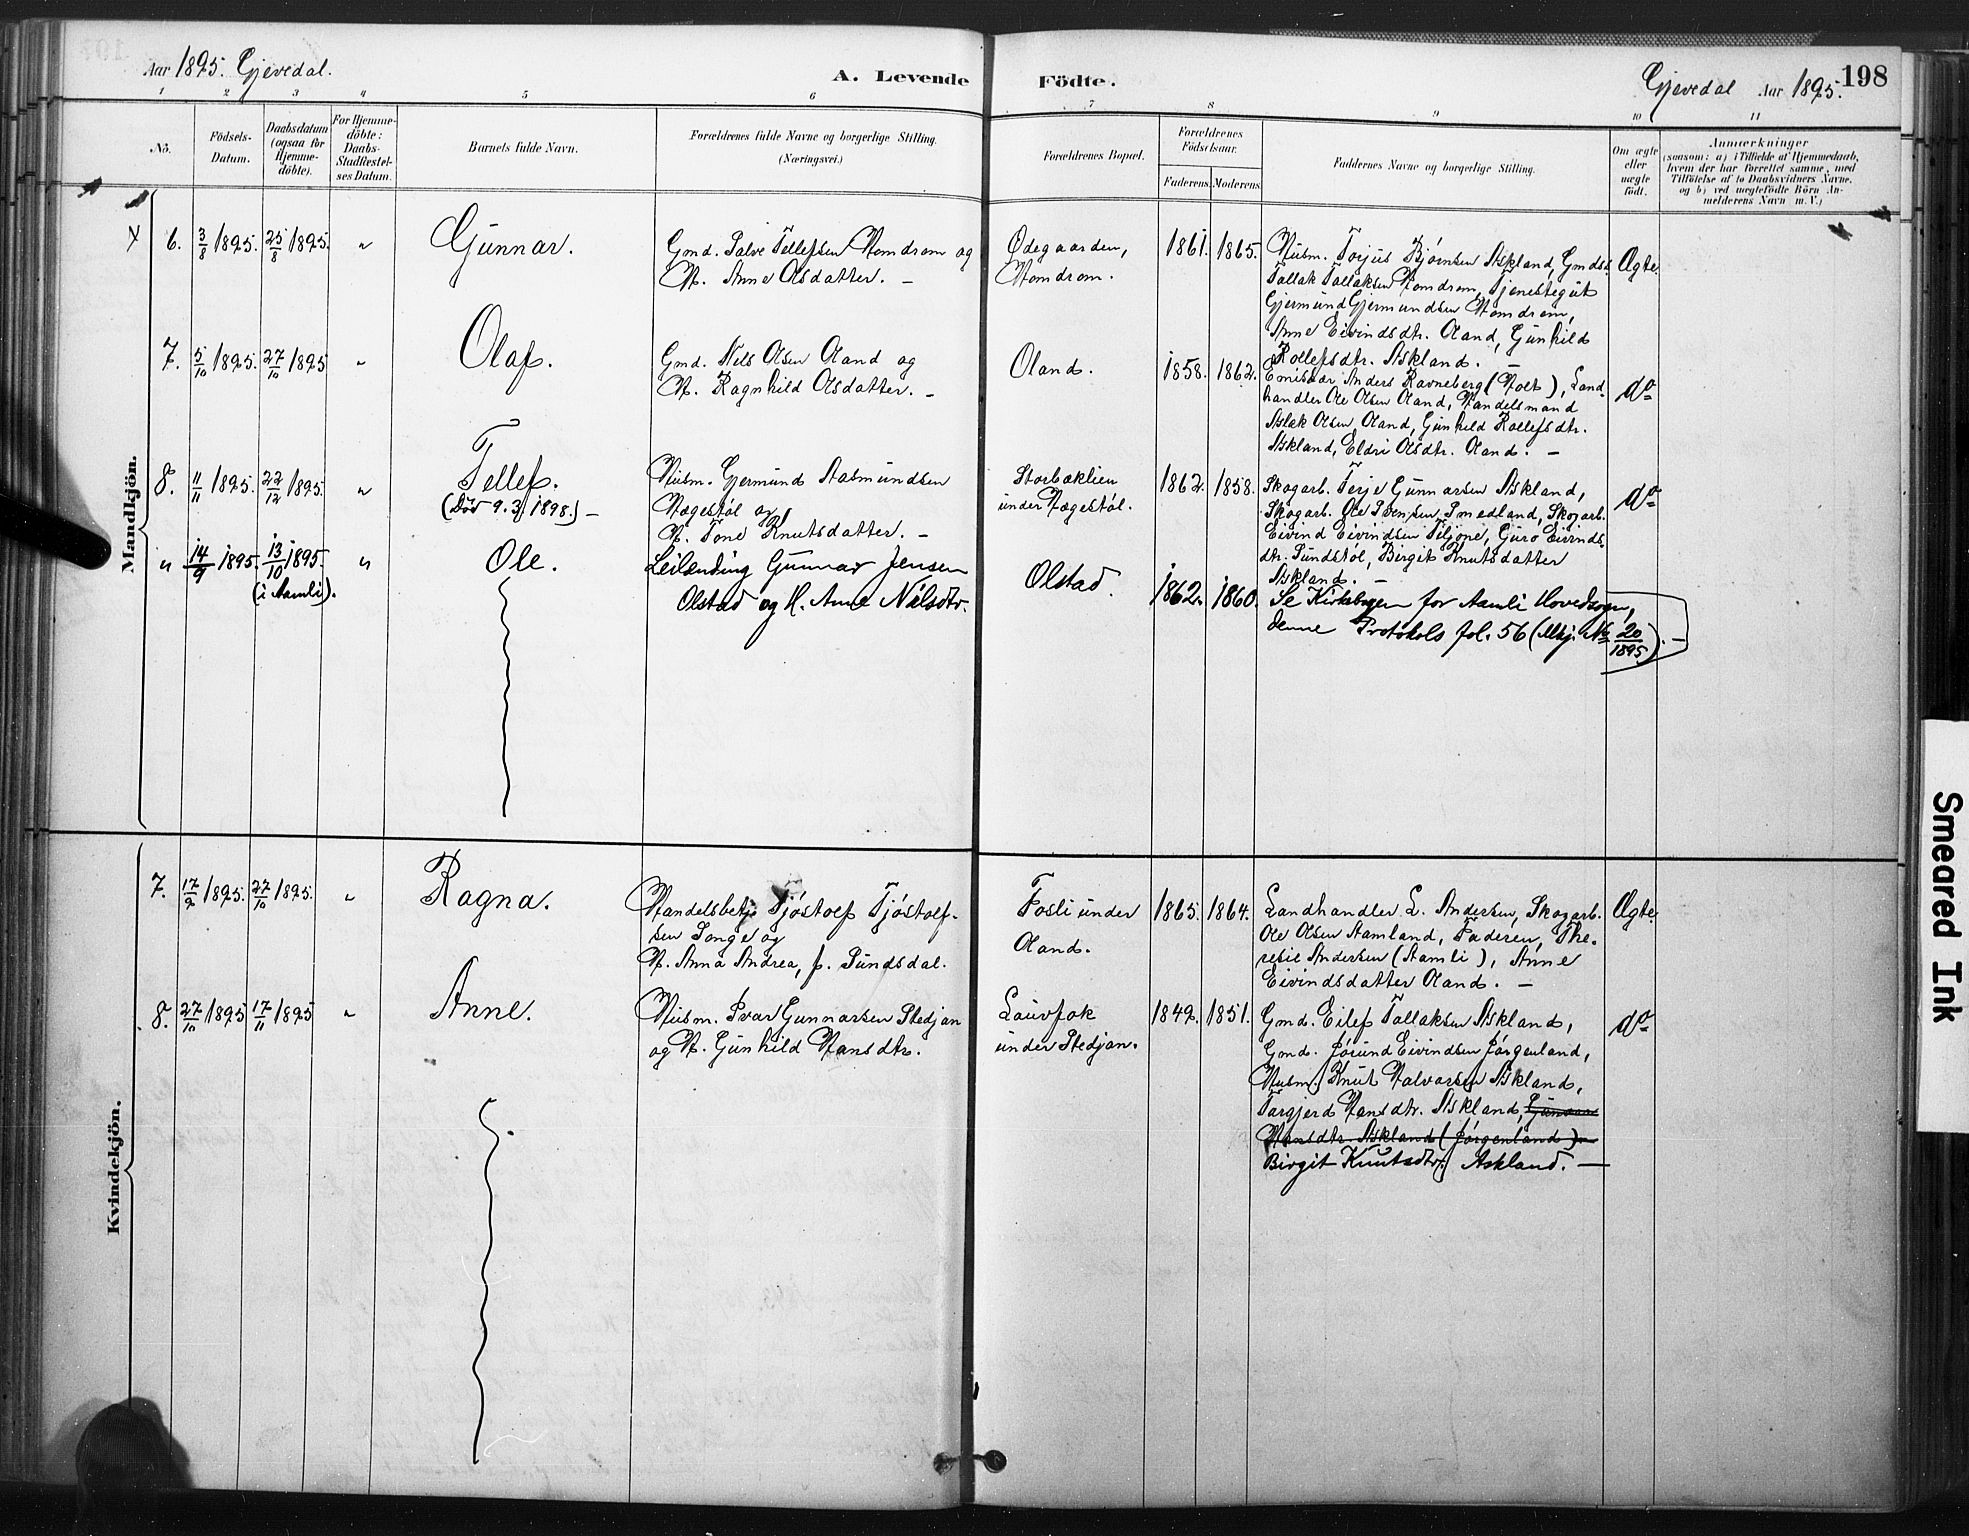 Aar 1895. Gjevedal.
A. Levende Födte.
Gjevedal Aar 1895.
198
1 2 3 4 5 6 7 8 9 10 11
No.
Födsels-
Datum.
Daabsdatum
(ogsaa for
Hjemme-
döbte).
For Hjemme-
döbte:
Daabs-
Stadfæstel-
ses Datum.
Barnets fulde Navn.
Forældrenes fulde Navne og borgerlige Stilling.
(Næringsvei.)
Forældrenes Bopæl.
Forældrenes
Födselsaar.
Faderens Moderens
Faddernes Navne og borgerlige Stilling.
Om ægte
eller
uægte
födt.
Anmærkninger
(saasom: a) i Tilfælde af Hjemmedaab,
hvem der har forrettet samme, med
Tilföielse af to Daabsvidners Navne,
og b) ved uægtefödte Börn An-
melderens Navn m. V.)
Mandkjön.
6. 3/8 1895. 25/8 1895. "
Gunnar.
Gmd. Salve Tellefsen Homdrom og
H. Anne Olsdatter. —
Ødegaarden,
Homdrom.
1861. 1865.
Husm. Torjus Bjørnsen Askland, Gmds.
Tallak Tallaksen Homdrom, Tjenestegut
Gjermund Gjermundsen Homdrom,
Anne Eivindsdtr. Oland, Gunhild
Rollefsdtr. Askland. —
Ægte.
7. 5/10 1895. 27/10 1895 "
Olaf.
Gmd. Nils Olsen Oland og
H. Ragnhild Olsdatter. —
Oland.
1858. 1862.
Emisær Anders Ravneberg (Holt), Land-
handler Ole Olsen Oland, Handelsmand
Aslak Olsen Oland, Gunhild Rollefsdtr.
Askland, Eldri Olsdtr. Oland. —
do
8. 11/11 1895. 22/12 1895. "
Tellef.
(Död 9.3. 1898.) —
Husm. Gjermund Aasmundsen
Hægestøl og
H. Tone Knutsdatter. —
Storbæklien
under Hægestøl.
1862. 1858.
Skogarb. Terje Gunnarsen Askland,
Skogarb. Ole Svensen Smedland, Skogarb.
Eivind Eivindsen Tiljone, Guro Eivinds-
dtr. Sundstøl, Birgit Knutsdatter
Askland. —
do
" 14/9 1895. 13/10 1895. "
(i Aamli).
Ole.
Leilænding Gunnar Jensen
Olstad og H. Anne Nilsdtr.
Olstad.
1862. 1860.
Se Kirkebogen for Aamli Hovedsogn,
denne Protokols fol. 56 (Mkj. No 20/1895). —
Kvindekjön.
7. 17/9 1895. 27/10 1895. "
Ragna.
Handelsbetj. Tjøstolf Tjøstolf-
sen Songe og
H. Anna Andrea, f. Sundsdal.
Fosli under
Oland.
1865. 1864.
Landhandler L. Andersen, Skogarb.
Ole Olsen Aamland, Faderen, The-
resie Andersen (Aamli), Anne
Eivindsdatter Oland. —
Ægte.
8. 27/10 1895 17/11 1895 "
Anne.
Husm. Ivar Gunnarsen Stedjan
og H. Gunhild Hansdtr.
Lauvfok
under Stedjan.
1849. 1851.
Gmd. Eilef Tallaksen Askland,
Gmd. Jórund Eivindsen Jórgenland,
Husm. Knut Halvorsen Askland,
Targjerd Hansdtr. Askland, Gunvor
Hansdtr. Askland (Jórgenland) —
Birgit Knutsdtr. Askland. —
do
Smeared Ink